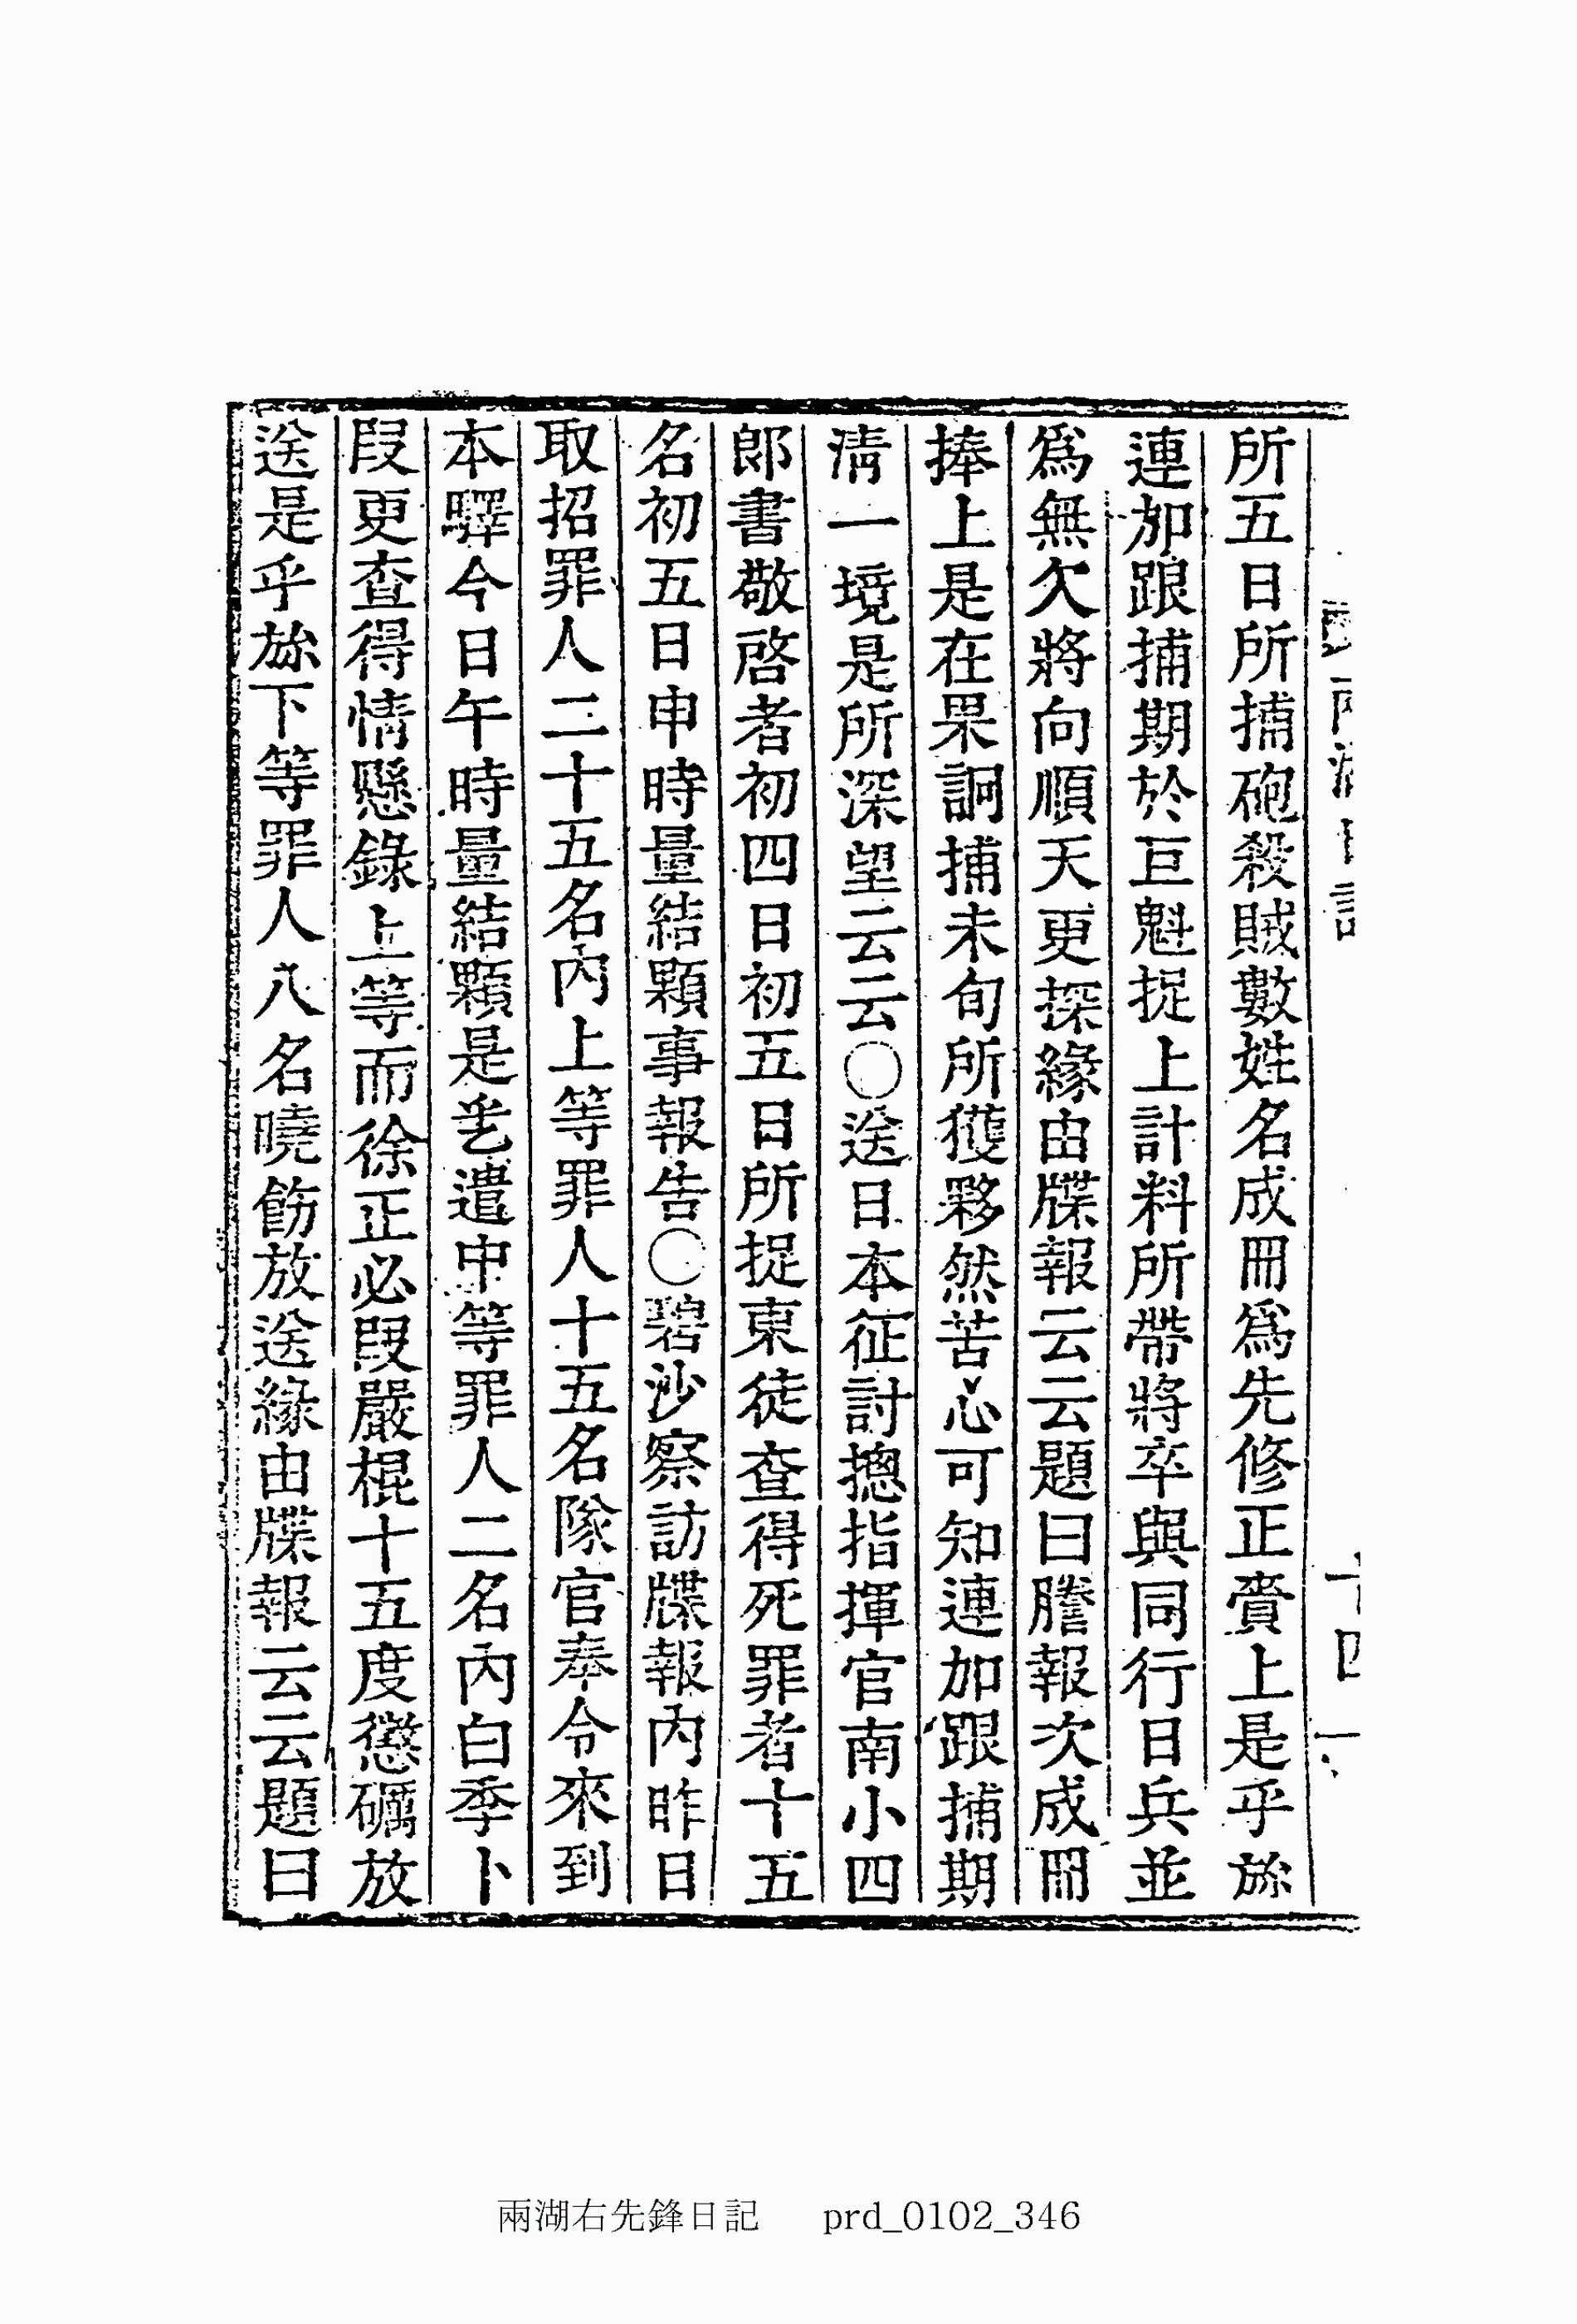 所五日所捕砲殺賊數姓名成冊爲先修正賷上是乎旀
連加跟捕期於巨魁捉上計料所帶將卒與同行日兵並
爲無欠將向順天更探緣由牒報云云題曰謄報次成冊
捧上是在果詗捕未旬所獲夥然苦心可知連加跟捕期
淸一境是所深望云云〇送日本征討摠指揮官南小四
郞書敬啓者初四日初五日所捉東徒查得死罪者十五
名初五日申時量結顆事報告〇碧沙察訪牒報內昨日
取招罪人二十五名內上等罪人十五名隊官奉令來到
本驛今日午時量結顆是乎遣中等罪人二名內白季卜
段更查得情懸錄上等而徐正必段嚴棍十五度懲礪放
送是乎旀下等罪人八名曉飭放送緣由牒報云云題曰
兩湖右先鋒日記 prd_0102_346